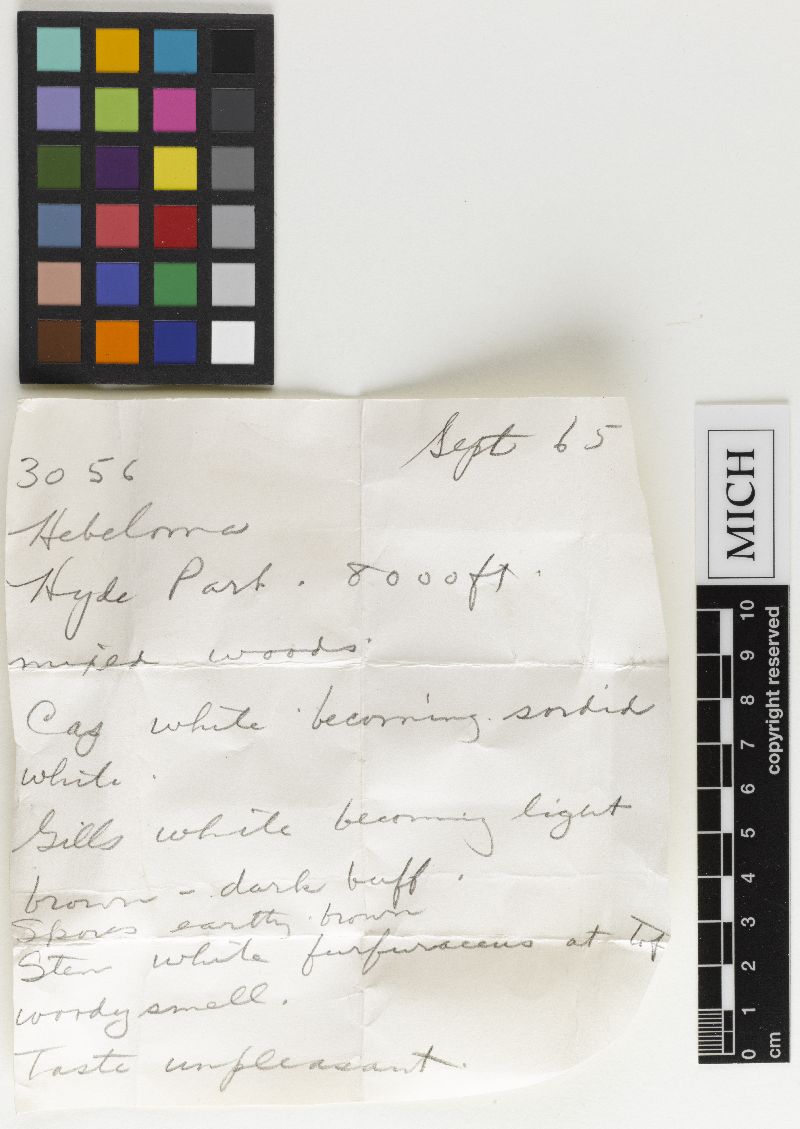 Sept 65
3056
Hebeloma
Hyde Park. 8000ft.
mixed woods.
Cap white becoming sordid
white.
Gills white becoming light
brown - dark buff.
Spores earthy brown
Stem white furfuraceus at Top
woody smell.
Taste unpleasant.
MICH
copyright reserved
0 1 2 3 4 5 6 7 8 9 10
cm